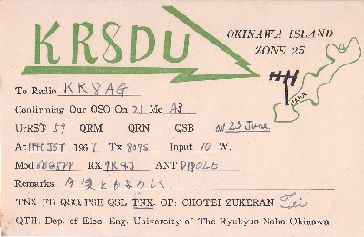 KR8DU
OKINAWA ISLAND
ZONE 25
NAHA
To Radio KR8AG
Confirming Our QSO On 21 Mc A3
UrRST 59 QRM QRN QSB on 23 June
At JST 196 Tx 807S Input 10 W.
Mod RX 9R4J ANT DIPOLE
Remarks
TNX FB QSO, PSE QSL TNX. OP: CHOTEI ZUKERAN
QTH: Dep. of Elec. Eng. University of The Ryukyus Naha Okinawa